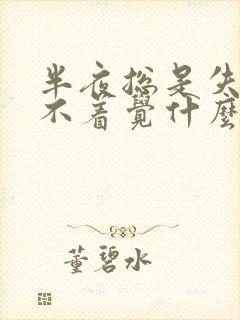 半夜总是失
不着觉什麽
董碧水